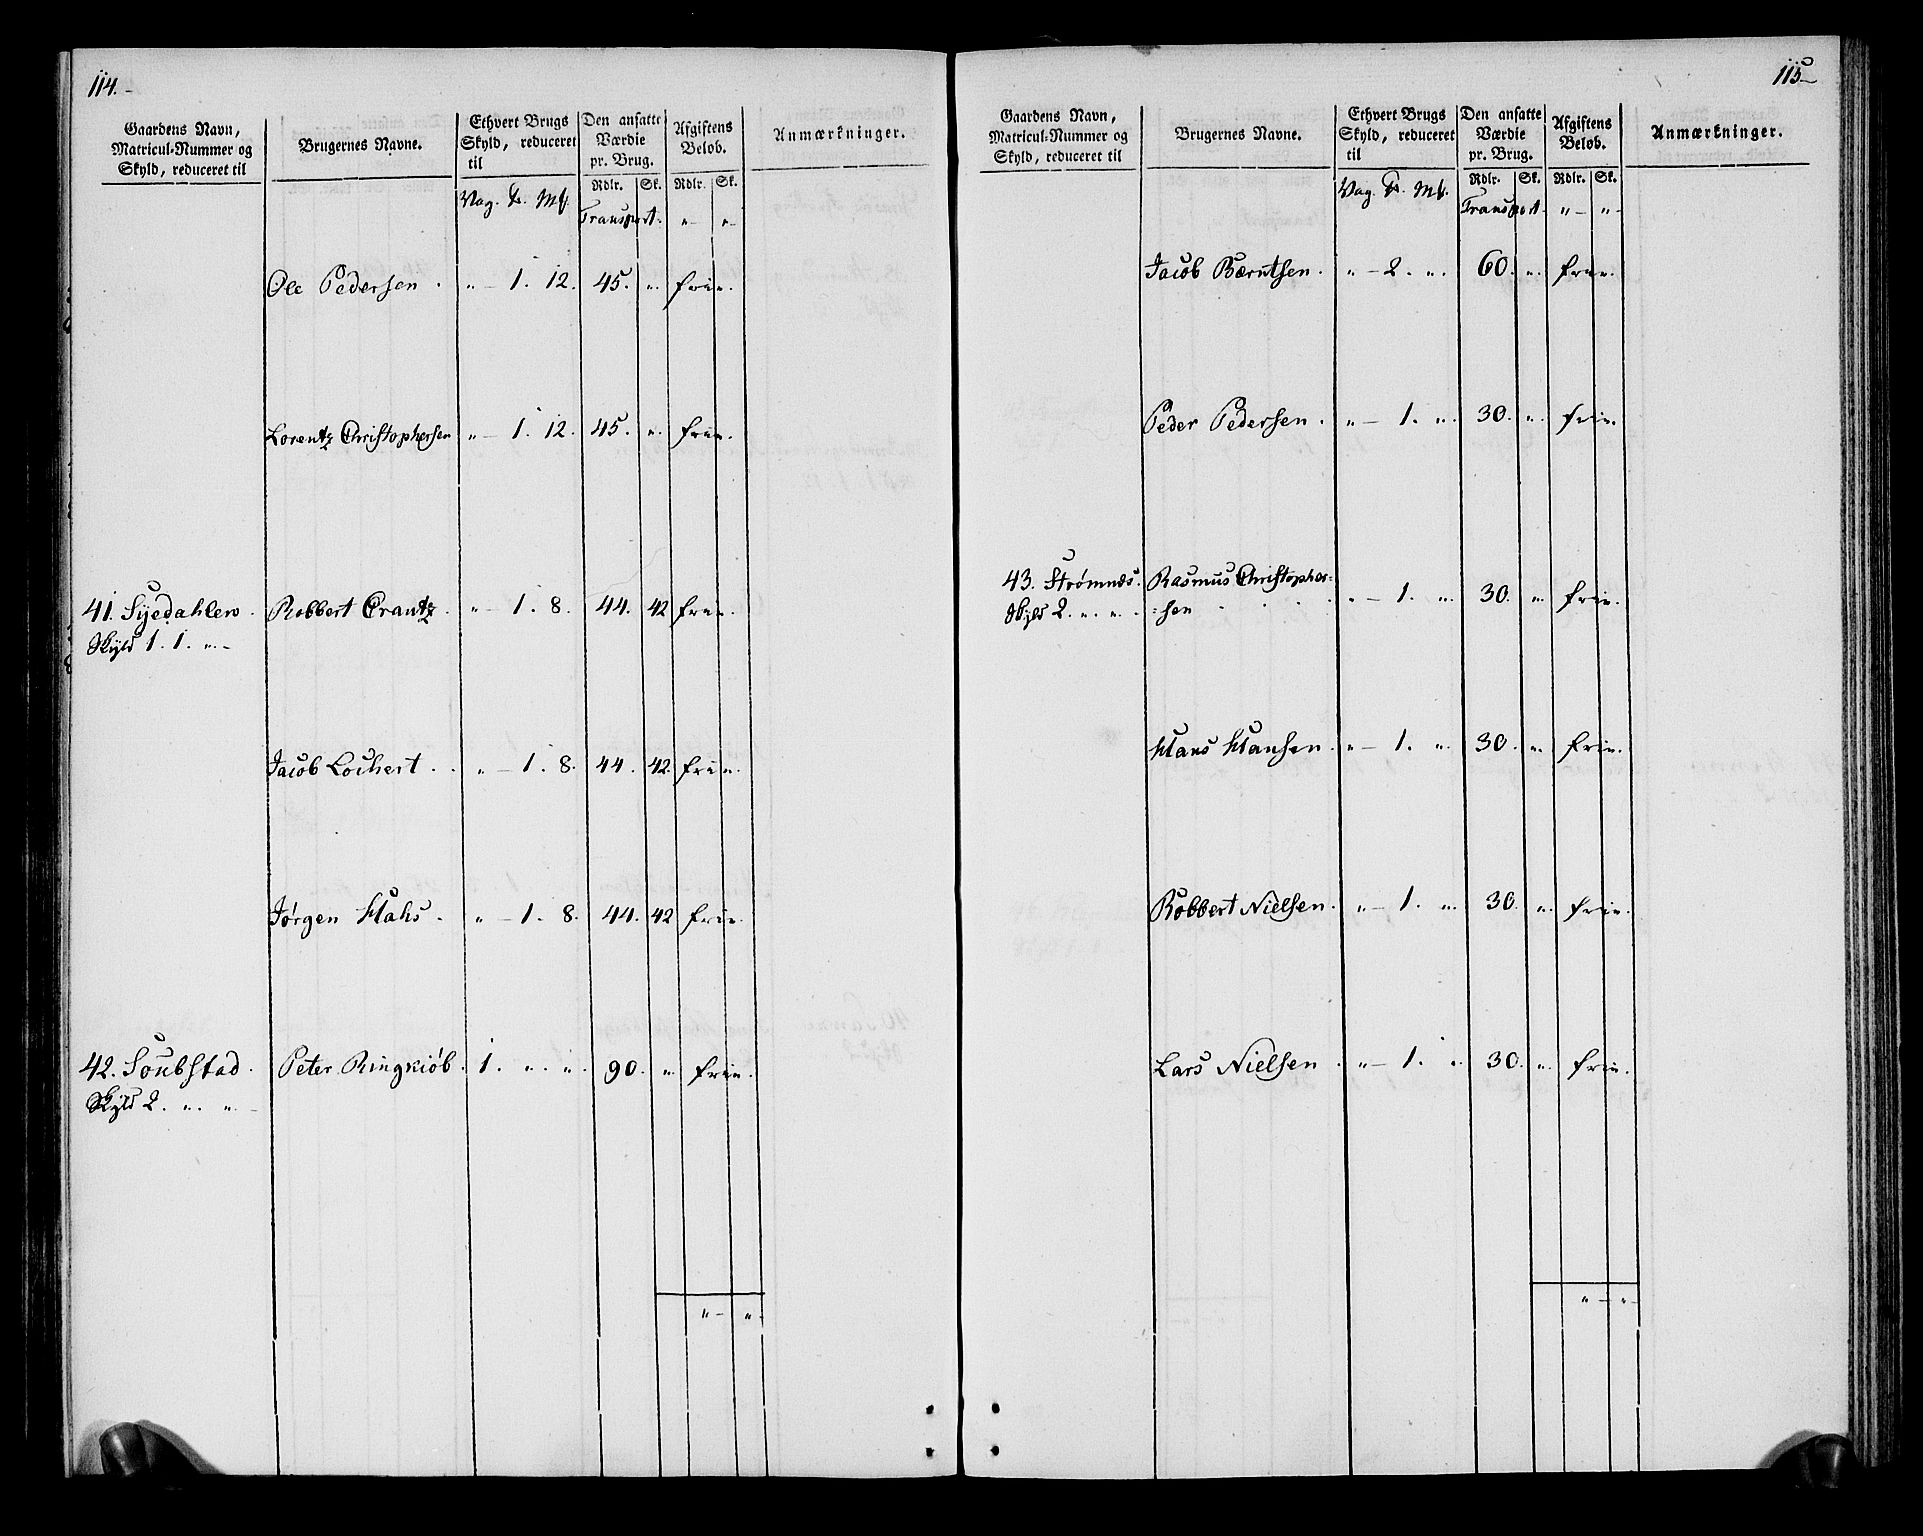 114.
Gaardens Navn, Matricul-Nummer og Skyld, reduceret til
Brugernes Navne.
Ethvert Brugs Skyld, reduceret til
Den ansatte Værdie pr. Brug.
Afgiftens Beløb.
Anmærkninger.
Rdlr. Sk. Rdlr. Sk.
Vag. Mk.
Transport. " — " —
Ole Pedersen . " — 1. 12. 45. " frie.
Lorentz Christophersen " — 1. 12. 45. " frie.
41. Syedahlen . Robbert Crantz . " — 1. 8. 44. 42 frie.
Skyld 1. 1. " —
Jacob Lochert . . " — 1. 8. 44. 42. frie.
Jørgen Hahs . " — 1. 8. 44. 42 frie.
42. Soubstad . Peter Ringkiøb . 1. " . " . 90. " frie.
Skyld 2. " . " —
" — " .
115
Gaardens Navn, Matricul-Nummer og Skyld, reduceret til
Brugernes Navne.
Ethvert Brugs Skyld, reduceret til
Den ansatte Værdie pr. Brug.
Afgiftens Beløb.
Anmærkninger.
Rdlr. Sk. Rdlr. Sk.
Vag. Mk.
Transport. " — " —
Jacob Bærntsen . " — 2. " . 60. " . frie.
Peder Pedersen . " — 1. " . 30. " . frie.
43. Strømnes . Rasmus Christopher-
Skyld 2. " . " . -sen . . . " — 1. " . 30. " . frie.
Hans Hansen . " — 1. " . 30. " . frie.
Robbert Nielsen . " — 1. " . 30. " . frie.
Lars Nielsen . " — 1. " . 30. " . frie.
" — " —